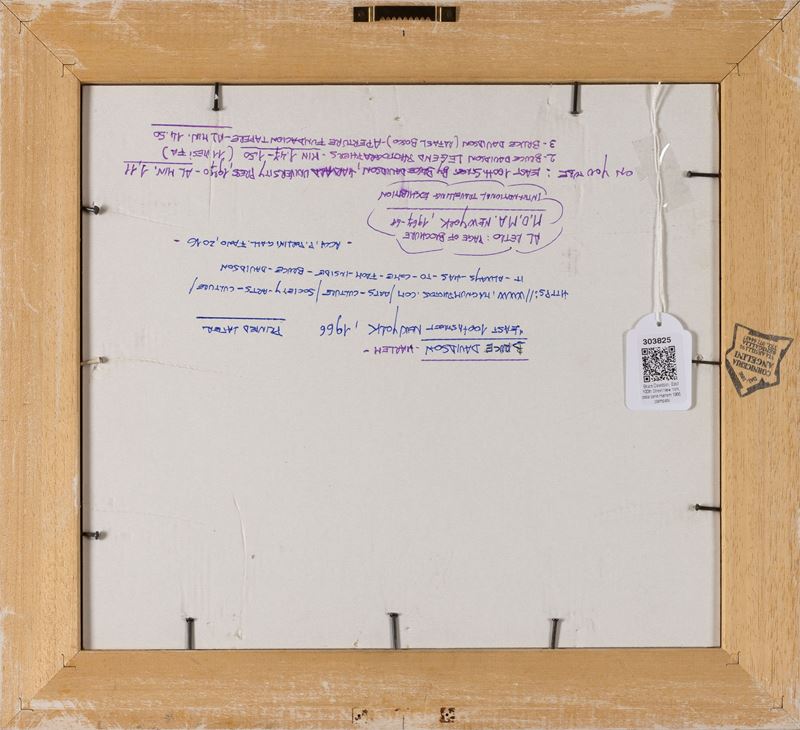 BRUCE DAVIDSON - HARLEM -
"EAST 100TH STREET NEW YORK, 1966 PRINTED LATER
HTTPS://WWW.MAGNUMPHOTOS.COM/ARTS-CULTURE/SOCIETY-ARTS-CULTURE/
IT-ALWAYS-HAS-TO-COME-FROM-INSIDE-BRUCE-DAVIDSON
- ACQ. P. 2016 -
AL RETRO: PAGE OF BROCHURE
M.O.M.A. NEW YORK, 1967-68
INTERNATIONAL TRAVELLING EXHIBITION
ON YOU TUBE: 1 EAST 100TH STREET BY BRUCE DAVIDSON, HARVARD UNIVERSITY PRESS 1970 - AL MIN. 1,11
2. BRUCE DAVIDSON LEGEND PHOTOGRAPHERS - MIN 1,47-1.50 (11 MESI FA)
3 - BRUCE DAVIDSON (RAFAEL BOSCO) - APERTURE FUNDACION TAPFRE - AL MIN. 14.50
303825
Bruce Davidson, East
100th Street New York,
dalla serie Harlem 1966,
stampato
CORNICERIA
ANGELINI